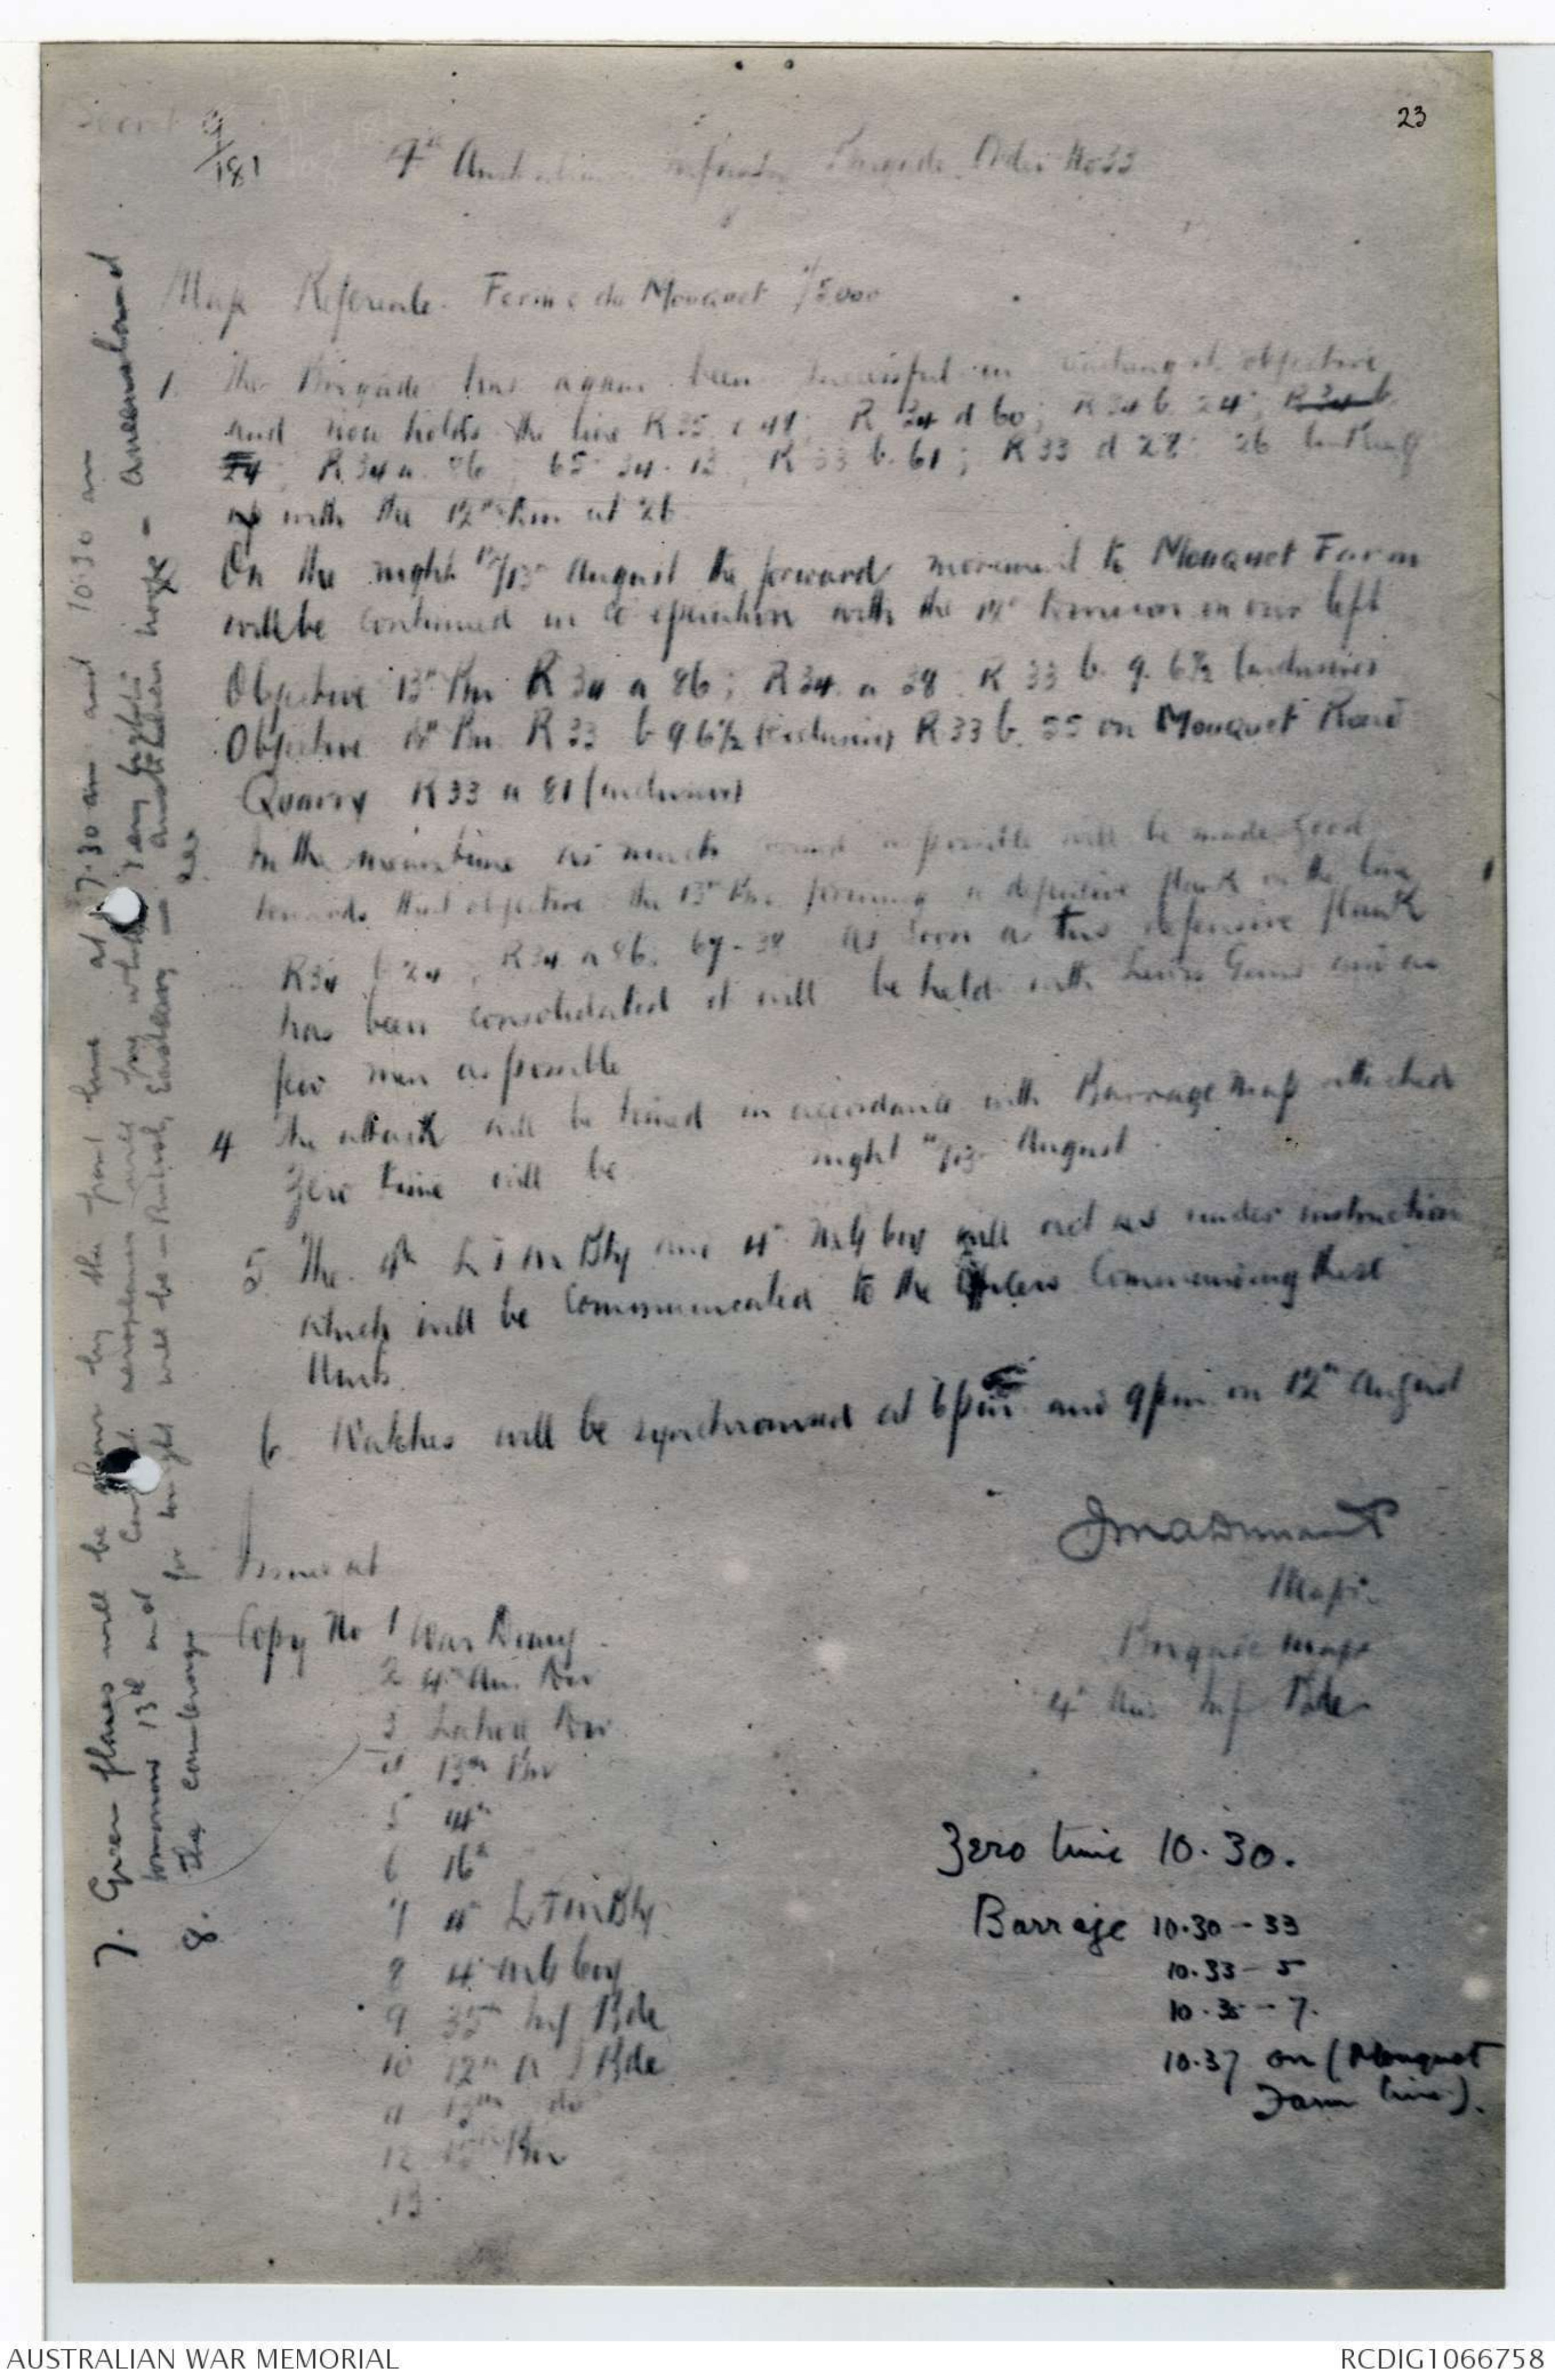 23
Secret
9/181
4th Australian Infantry Brigade Order No 33
Map Reference. Ferme du Mouquet 1/5000
1. The Brigade has again been successful in objective
and now holds the line R 35 c 49; R 34 d 60; R 34 b 24; R 34 b
24; R 34 a 86, 65 34 - 13, R 33 b. 61; R 33 d 28. 26
up with the 12th Bn at 26
On the night 12/13th August the forward movement to Mouquet Farm
will be continued in co operation with the on our left
Objective 13th Bn R 34 a 86; R 34. a 38 R 33 b. 9. 6½ (inclusive)
Objective Bn. R 33 b 9 6½ (exclusive) R 33 b. 55 on Mouquet Road
Quarry R 33 a 81 (inclusive)
In the meantime as much ground as possible will be made good
towards that objective the 13th Bn. forming a defensive flank on the line
R 34 b 24, R 34 a 86. 67 - 38 As soon as this defensive flank
has been consolidated it will be held with Lewis Guns and as
few men as possible
4 The attack will be timed in accordance with Barrage Map attached
Zero time will be night 12/13 August
5 The 4th L T M Bty and 4th M G Coy will act as under instruction
which will be communicated to the Officers Commanding these
Units.
6 Watches will be synchronised at 6 pm and 9 pm on 12th August
Major
Brigade Major
4th Aus Inf Bde
Issued at
Copy No 1 War Diary
2 4th Aus. Div
3
4 13th Bn
5 14th
6 16th
7 4th L T M Bty
8 4th M G Coy
9 35th Inf Bde
10 12th A I Bde
11 13th do
12 Bn
13
Zero time 10.30.
Barrage 10.30 - 33
10.33 - 5
10.35 - 7.
10.37 on (Mouquet
Farm line).
7. Green flares will be shown by the front line at 7.30 am and 10.30 am
tomorrow 13th inst aeroplanes will
8. The countersign for tonight will be - -
AUSTRALIAN WAR MEMORIAL
RCDIG1066758